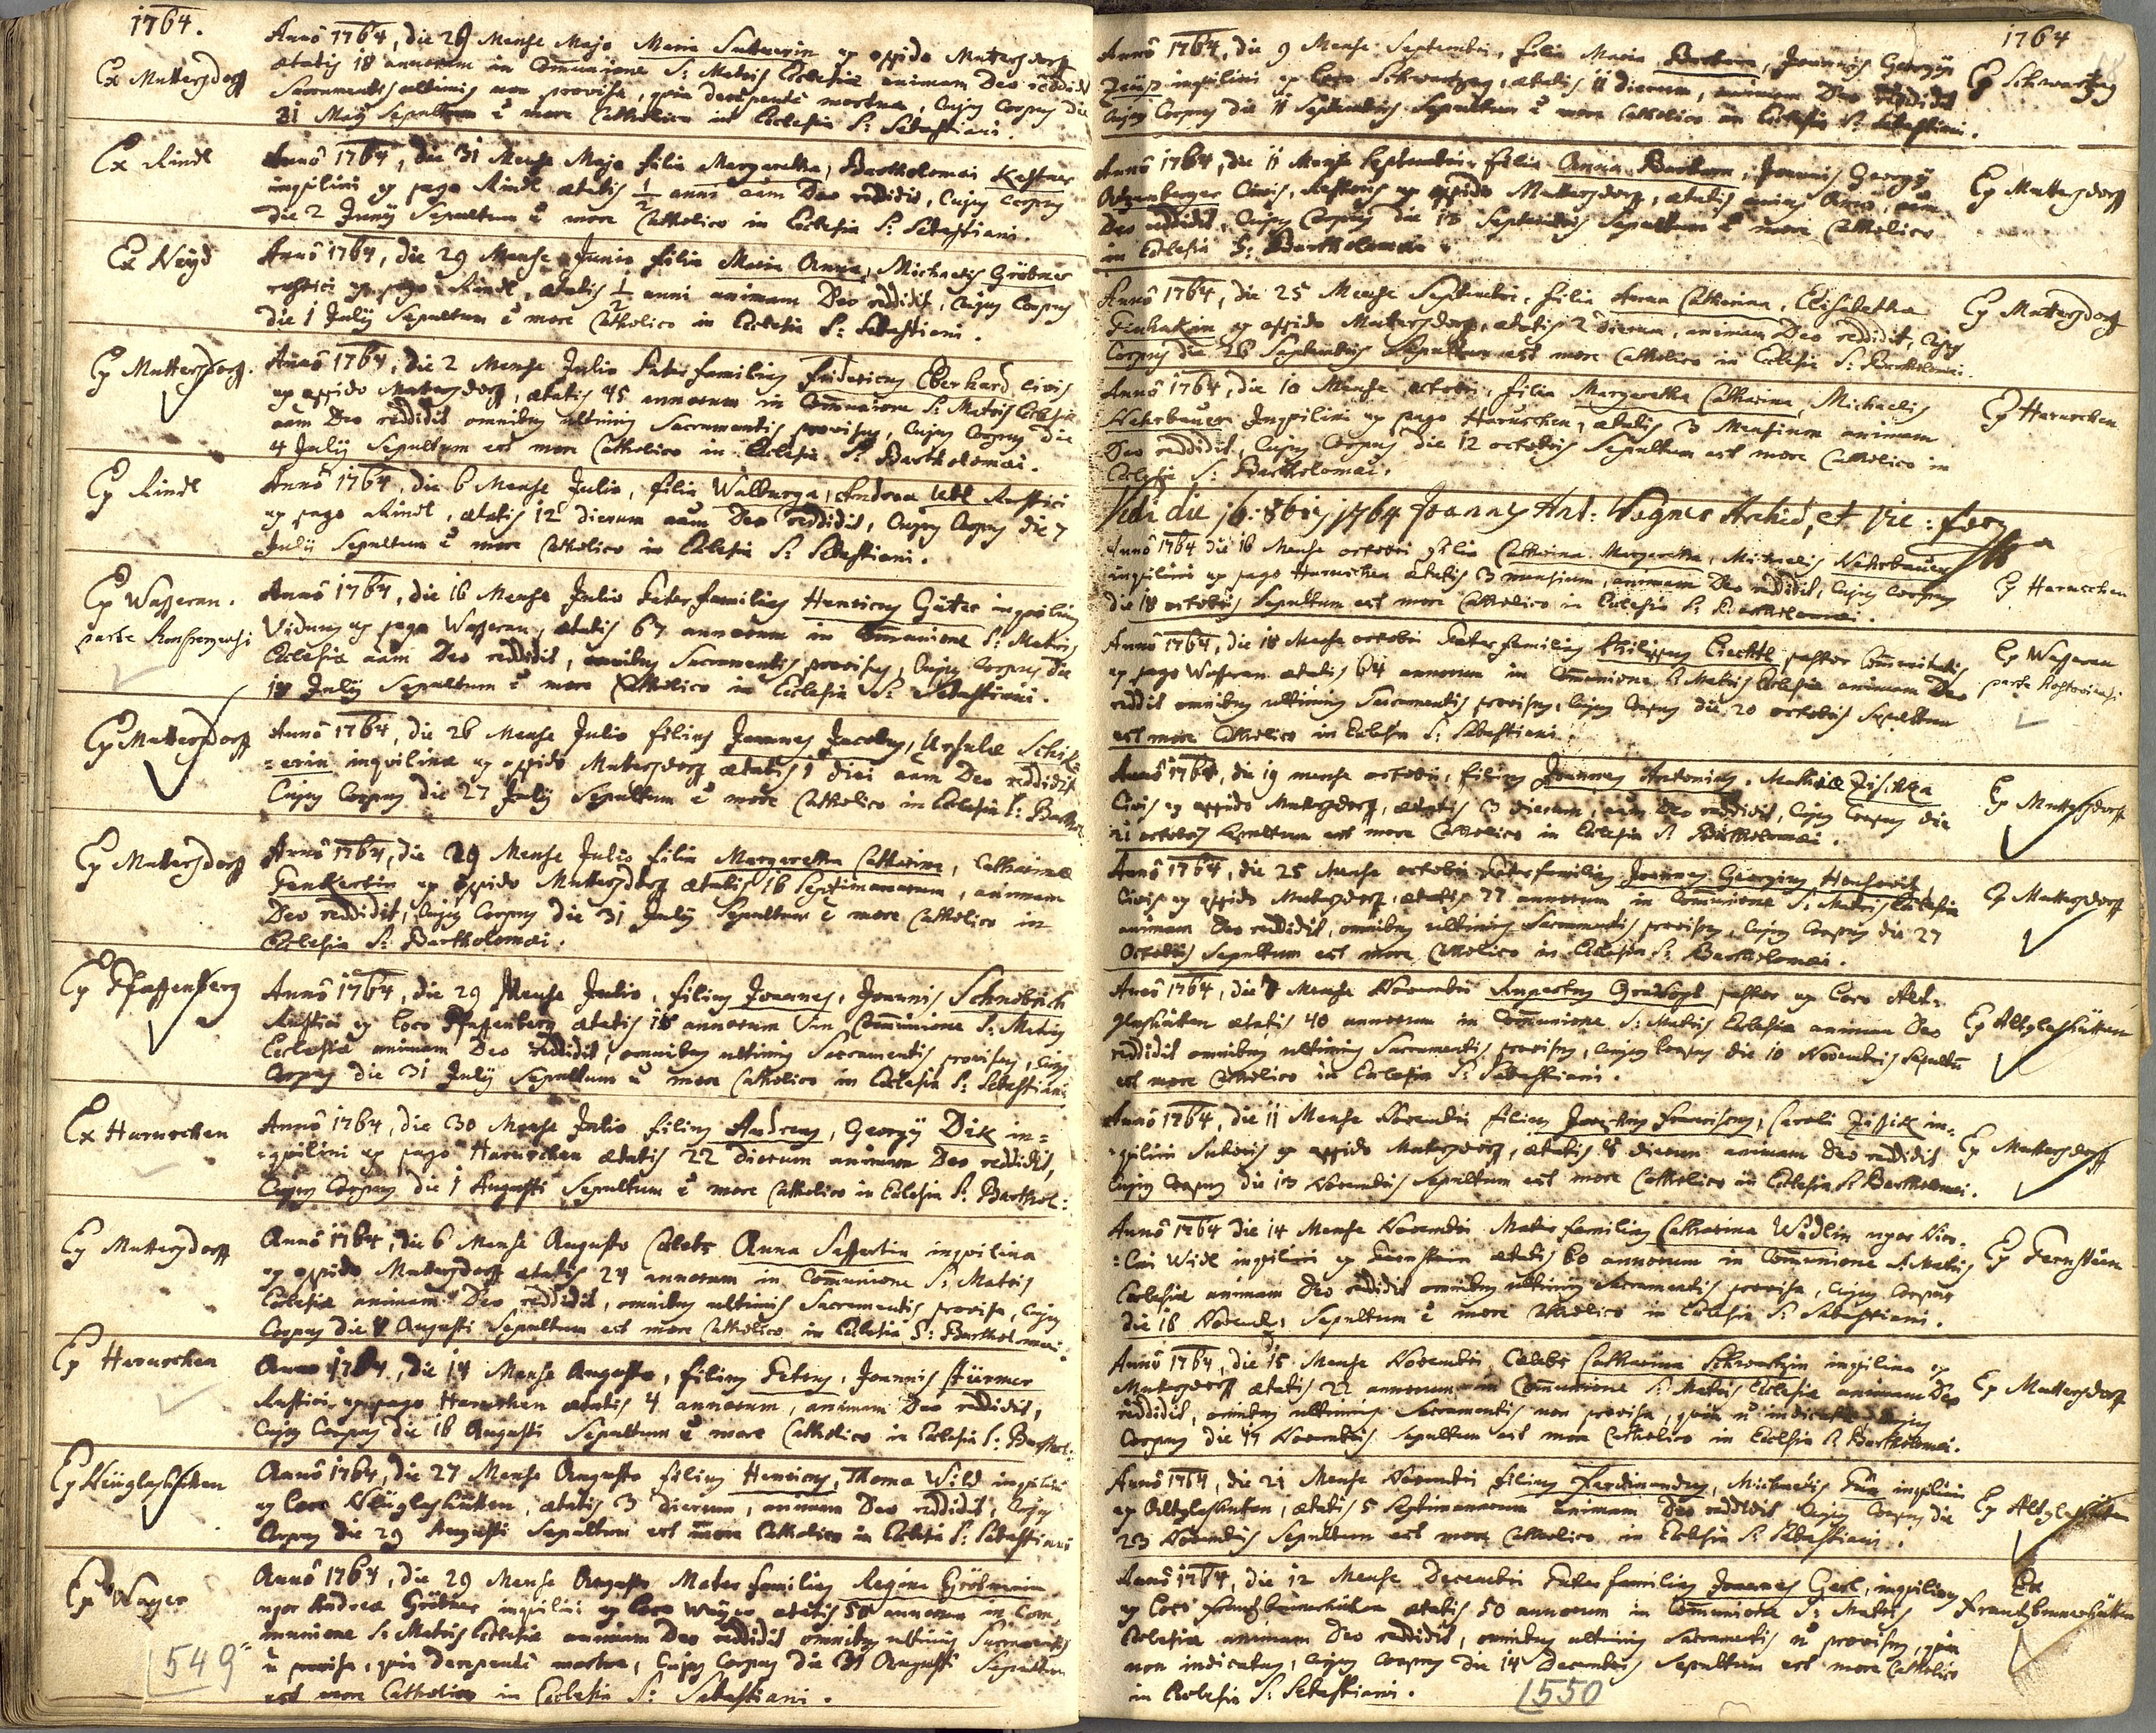 1764.
Ex Muttersdorff
Anno 1764, die 29 Mense Majo Maria Suttnerin ex oppido Muttersdorff
ætatis 18 annorum in Communione S: Matris Ecclesiæ animam Deo reddidit
Sacramentis ultimis non provisa, quia derepente mortua, Cujus Corpus die
31 Maÿ Sepultum ẽ more Catholico in Ecclesia S: Sebastiani.
Ex Rindl
Anno 1764, die 31 Mense Majo filia Margaretha, Bartholomæi Kastner
inquilini ex pago Rindl ætatis 1/2 anni aãm Deo reddidit, Cujus Corpus
die 2 Junÿ Sepultum ẽ more Catholico in Ecclesia S: Sebastiani.
Ex Neÿd
Anno 1764, die 29 Mense Junio filia Maria Anna, Michaelis Gröbner
rustici ex pago Rindl, ætatis 1/2 anni animam Deo reddidit, Cujus Corpus
die 1 Julÿ Sepultum ẽ more Catholico in Ecclesia S: Sebastiani.
Ex Muttersdorff.
Anno 1764, die 2 Mense Julio Pater familias Fridericus Eberhard civis
ex oppido Muttersdorff, ætatis 45 annorum in Communione S: Matris Ecclesiæ
aãm Deo reddidit omnibus ultimis Sacramentis provisus, Cujus Corpus die
4 Julÿ Sepultum est more Catholico in Ecclesia S: Bartholomæi.
Ex Rindl
Anno 1764, die 6 Mense Julio, filia Walburga, Andreæ Rustici
ex pago Rindl, ætatis 12 dierum aãm Deo reddidit, Cujus Corpus die 7
Julÿ Sepultum ẽ more Catholico in Ecclesia S: Sebastiani.
Ex Wasseran.
parte
Anno 1764, die 16 Mense Julio Pater familias Henricus Güter inquilinus
Viduus ex pago Wasseran, ætatis 67 annorum in Communione S: Matris
Ecclesiæ aãm Deo reddidit, omnibus Sacramentis provisus, Cujus Corpus die
18 Julÿ Sepultum ẽ more Catholico in Ecclesia S: Sebastiani.
Ex Muttersdorff
Anno 1764, die 26 Mense Julio filius Joannes Jacobus, Ursulæ Schik=
=erin inquilinæ ex oppido Muttersdorff ætatis 1 diei aãm Deo reddidit
Cujus Corpus die 27 Julÿ Sepultum ẽ more Catholico in Ecclesia S: Barthol
Ex Muttersdorff
Anno 1764, die 29 Mense Julio filia Margaretha Catharina, Catharinæ
ex oppido Muttersdorff ætatis 16 Septimanarum, animam
Deo reddidit, Cujus Corpus die 31 Julÿ Sepultum ẽ more Catholico in
Ecclesia S: Bartholomæi.
Ex Pfaffenberg
Anno 1764, die 29 Mense Julio, filius Joannes, Joannis Schnobrich
Rustici ex loco Pfaffenberg ætatis 18 annorum in Communione S: Matris
Ecclesiæ animam Deo reddidit omnibus ultimis Sacramentis provisus, Cujus
Corpus die 31 Julÿ Sepultum ẽ more Catholico in Ecclesia S: Sebastiani
Ex Haruschen
Anno 1764, die 30 Mense Julio filius Andreas, Georgÿ Dik in=
=quilini ex pago Haruschen ætatis 22 dierum animam Deo reddidit,
Cujus Corpus die 1 Augusti Sepultum ẽ more Catholico in Ecclesia S: Barthol:
Ex Muttersdorff
Anno 1764, die 6 Mense Augusto Cælebs Anna inquilina
ex oppido Muttersdorff ætatis 24 annorum in Communione S: Matris
Ecclesiæ animam Deo reddidit, omnibus ultimis Sacramentis provisa, Cujus
Corpus die 8 Augusti Sepultum est more Catholico in Ecclesia S: Bartholomæi.
Ex Haruschen
Anno 1764, die 14 Mense Augusto, filius Petrus, Joannis Stürmer
Rustici ex pago Haruschen ætatis 4 annorum, animam Deo reddidit,
Cujus Corpus die 16 Augusti Sepultum ẽ more Catholico in Ecclesia S: Barthol:
Ex Neüglashütten
Anno 1764, die 27 Mense Augusto filius Henricus, Thomæ Wild inquilini
ex loco Neüglashütten, ætatis 3 dierum, animam Deo reddidit, Cujus
Corpus die 29 Augusti Sepultum est more Catholico in Ecclesia S: Sebastiani
Ex Waÿer
Anno 1764, die 29 Mense Augusto Mater familias Regina Gröbnerin
uxor Andreæ Gröbner inquilini ex loco Waÿer ætatis 50 annorum in Com
munione S: Matris Ecclesiæ animam Deo reddidit omnibus ultimis Sacramentis
ñ provisa, quia derepente mortua, Cujus Corpus die 31 Augusti Sepultum
est more Catholico in Ecclesia S: Sebastiani.
549
1764
Anno 1764, die 9 Mense Septembri, filia Maria Barbara, Joannis Georgÿ
inquilini ex loco Schwartzeg, ætatis 11 dierum, animam Deo reddidit
Cujus Corpus die 11 Septembris Sepultum ẽ more Catholico in Ecclesia S: Sebastiani.
Ex Schwartzeg
Anno 1764, die 11 Mense Septembri, filia Anna Barbara, Joannis Georgÿ
Civis, ex oppido Muttersdorff, ætatis unius Anni, aãm
Deo reddidit, Cujus Corpus die 13 Septembris Sepultum ẽ more Catholico
in Ecclesia S: Bartholomæi.
Ex Muttersdorff
Anno 1764, die 25 Mense Septembri, filia Anna Catharina, Elisabetha
ex oppido Muttersdorff, ætatis 2 dierum, animam Deo reddidit, Cujus
Corpus die 26 Septembris Sepultum est more Catholico in Ecclesia S: Bartholomæi.
Ex Muttersdorff
Anno 1764, die 10 Mense octobri, filia Margaretha Catharina, Michaelis
Nehrbauer Inquilini ex pago Haruschen, ætatis 3 Mensium animam
Deo reddidit, Cujus Corpus die 12 octobris Sepultum est more Catholico in
Ecclesia S: Bartholomæi.
Ex Haruschen
Vidi die 16: 8bris 1764 Joannes Ant: Wagner Archid, et Vic: for
Anno 1764 die 16 Mense octobri filia Catharina Margaretha, Michaelis Nehrbauer
inquilini ex pago Haruschen ætatis 3 mensium, animam Deo reddidit, Cujus Corpus
die 18 octobris Sepultum est more Catholico in Ecclesia S: Bartholomæi.
Ex Haruschen
Anno 1764, die 18 Mense octobri Pater familias Philippus Liechtl pastor Communitatis
ex pago Wasseran ætatis 64 annorum in Communione S: Matris Ecclesiæ animam Deo
reddidit omnibus ultimis Sacramentis provisus, Cujus Corpus die 20 octobris Sepultum
est more Catholico in Ecclesia S: Sebastiani.
Ex Wasseran
parte
Anno 1764, die 19 mense octobri, filius Joannes Antonius, Mathiæ Zischka
Civis ex oppido Muttersdorff, ætatis 3 dierum, aãm Deo reddidit, Cujus Corpus die
21 octobris Sepultum est more Catholico in Ecclesia S: Bartholomæi.
Ex Muttersdorff
Anno 1764, die 25 Mense octobri Pater familias Joannes Georgius
Civis ex oppido Muttersdorff, ætatis 77 annorum in Communione S: Matris Ecclesiæ
animam Deo reddidit, omnibus ultimis Sacramentis provisus, Cujus Corpus die 27
Octobris Sepultum est more Catholico in Ecclesia S: Bartholomæi.
Ex Muttersdorff
Anno 1764, die 8 Mense Novembri Rupertus pastor ex loco Alt=
glashütten ætatis 40 annorum in Communione S: Matris Ecclesiæ animam Deo
reddidit omnibus ultimis Sacramentis provisus, Cujus Corpus die 10 Novembris Sepultũ
est more Catholico in Ecclesia S: Sebastiani.
Ex Altglashütten
Anno 1764, die 11 Mense Novembri filius Joachim Franciscus, Caroli in=
=quilini Sutoris ex oppido Muttersdorff, ætatis 8 dierum animam Deo reddidit
Cujus Corpus die 13 Novembris Sepultum est more Catholico in Ecclesia S: Bartholomæi.
Ex Muttersdorff
Anno 1764 die 14 Mense Novembri Mater familias Catharina Widlin uxor Nico=
=lai Widl inquilini ex Bernstein ætatis 60 annorum in Communione S: Matris
Ecclesiæ animam Deo reddidit omnibus ultimis Sacramentis provisa, Cujus Corpus
die 16 Novemb: Sepultum ẽ more Catholico in Ecclesia S: Sebastiani.
Ex Bernstein
Anno 1764, die 15 Mense Novembri Cælebs Catharina inquilina ex
Muttersdorff ætatis 22 annorum in Communione S: Matris Ecclesiæ animam Deo
reddidit, omnibus ultimis Sacramentis non provisa, quia ñ indicata, Cujus
Corpus die 17 Novembris Sepultum est more Catholico in Ecclesia S: Bartholomæi.
Ex Muttersdorff
Anno 1764, die 21 Mense Novembri filius Ferdinandus, Michaelis inquilini
ex Altglashütten, ætatis 5 Septimanarum animam Deo reddidit Cujus Corpus die
23 Novembris Sepultum est more Catholico in Ecclesia S: Sebastiani.
Ex Altglashütten
Anno 1764, die 12 Mense Decembri Pater familias Joannes Gerl, inquilinus
ex loco Frantzbrunerhütten ætatis 50 annorum in Communione S: Matris
Ecclesiæ animam Deo reddidit, omnibus ultimis Sacramentis ñ provisus, quia
non indicatus, Cujus Corpus die 14 Decembris Sepultum est more Catholico
in Ecclesia S: Sebastiani.
Ex
Frantzbrunerhütten
550